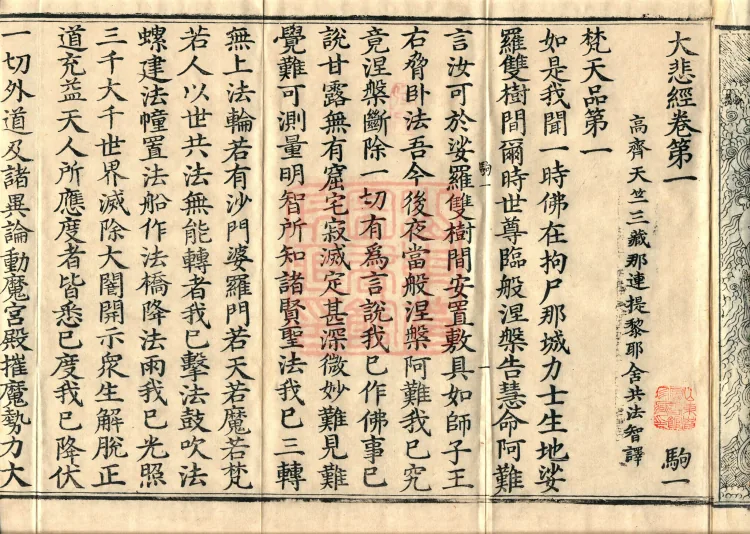 大悲經卷第一
駒一
高齊天竺三藏那連提黎耶舍共法智譯
梵天品第一
如是我聞一時佛在拘尸那城力士生地娑
羅雙樹間爾時世尊臨般涅槃告慧命阿難
駒一
言汝可於娑羅雙樹間安置敷具如師子王
右脅卧法吾今後夜當般涅槃阿難我已究
竟涅槃斷除一切有為言說我已作佛事已
說甘露無有窟宅寂滅定甚深微妙難見難
覺難可測量明智所知諸賢聖法我已三轉
無上法輪若有沙門婆羅門若天若魔若梵
若人以世共法無能轉者我已擊法鼓吹法
螺建法幢置法船作法橋降法雨我已光照
三千大千世界滅除大闇開示衆生解脫正
道充益天人所應度者皆悉已度我已降伏
一切外道及諸異論動魔宮殿摧魔勢力大